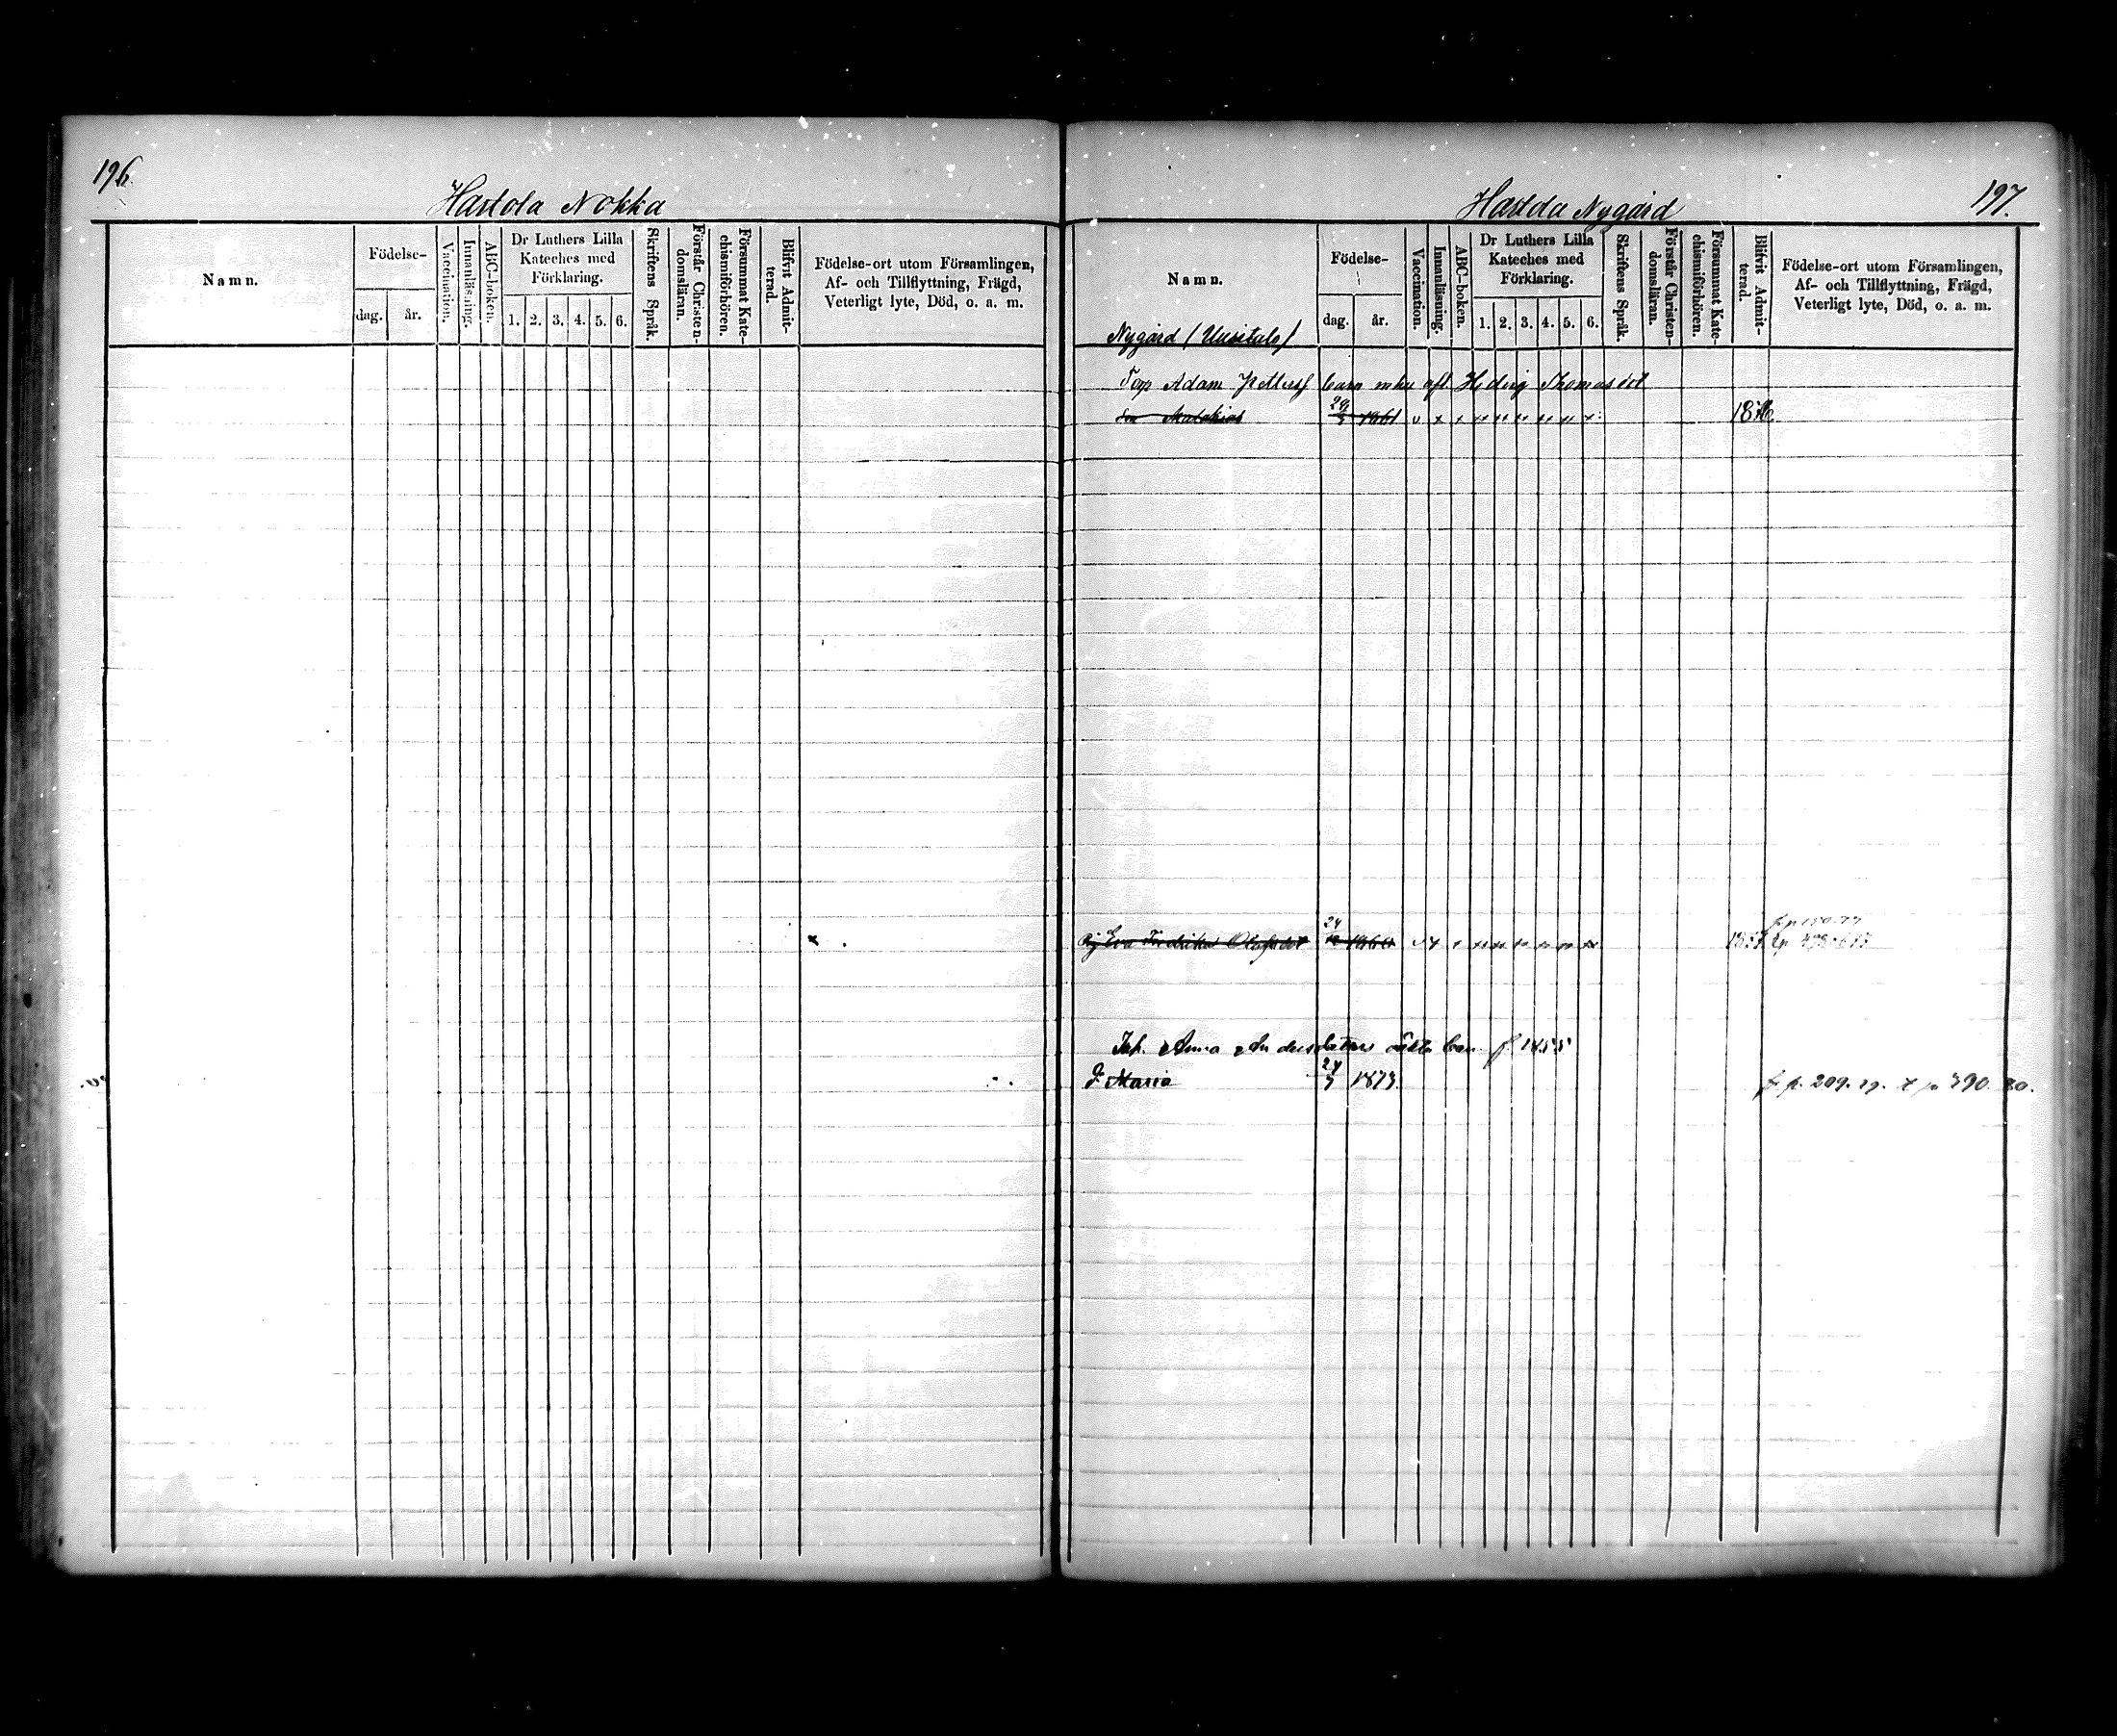 196.
Hastola Nokka
Namn.
Födelse-
dag.
år.
Vaccination.
Innanläsning.
ABC-boken.
Dr Luthers Lilla
Kateches med
Förklaring.
1. 2. 3. 4. 5. 6.
Skriftens Språk.
Förstår Christen-
domsläran.
Försummat Kate-
chismiförhören.
Blifvit Admit-
terad.
Födelse-ort utom Församlingen,
Af- och Tillflyttning, Frägd,
Veterligt lyte, Död, o. a. m.
197.
Hastola Nygård
Namn.
Födelse-
dag.
år.
Vaccination.
Innanläsning.
ABC-boken.
Dr Luthers Lilla
Kateches med
Förklaring.
1. 2. 3. 4. 5. 6.
Skriftens Språk.
Förstår Christen-
domsläran.
Försummat Kate-
chismiförhören.
Blifvit Admit-
terad.
Födelse-ort utom Församlingen,
Af- och Tillflyttning, Frägd,
Veterligt lyte, Död, o. a. m.
Nygård (Uusitalo)
Torp Adam Petterss barn m hu afl. Hedvig Thomasdot
Son 1861 1876
Pig Eva Fredrika Olofsdot 24 1860
Inh. Anna Andersdotters oäkta barn f 1855
D. Maria 24 1873. fr p. 209. 79. t p 390. 80.